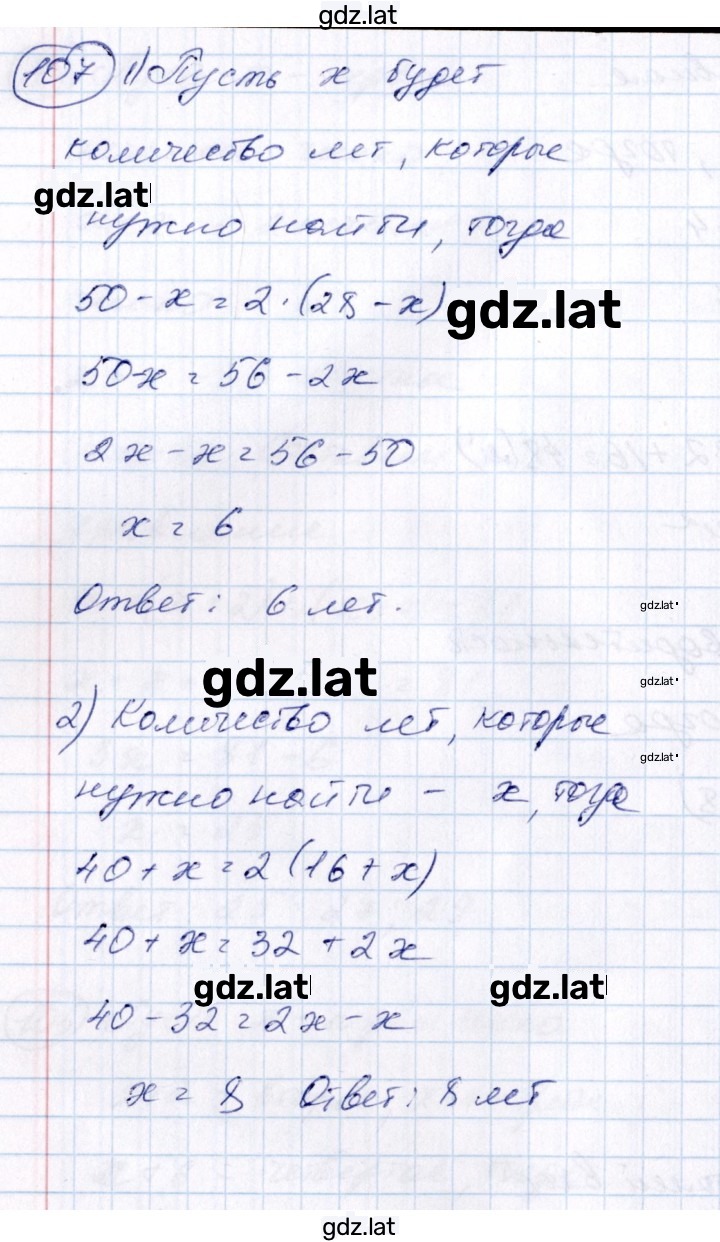 gdz.lat
107 1) Пусть х будет
количество лет, которые
gdz.lat
нужно найти, тогда
50 - х = 2 · (28 - х)
gdz.lat
50-х = 56 - 2х
2х - х = 56 - 50
х = 6
Ответ: 6 лет.
gdz.lat
gdz.lat
gdz.lat
2) Количество лет, которые
gdz.lat
нужно найти - х, тогда
40 + х = 2 (16 + х)
40 + х = 32 + 2х
gdz.lat gdz.lat
40 - 32 = 2х - х
х = 8 Ответ: 8 лет
gdz.lat